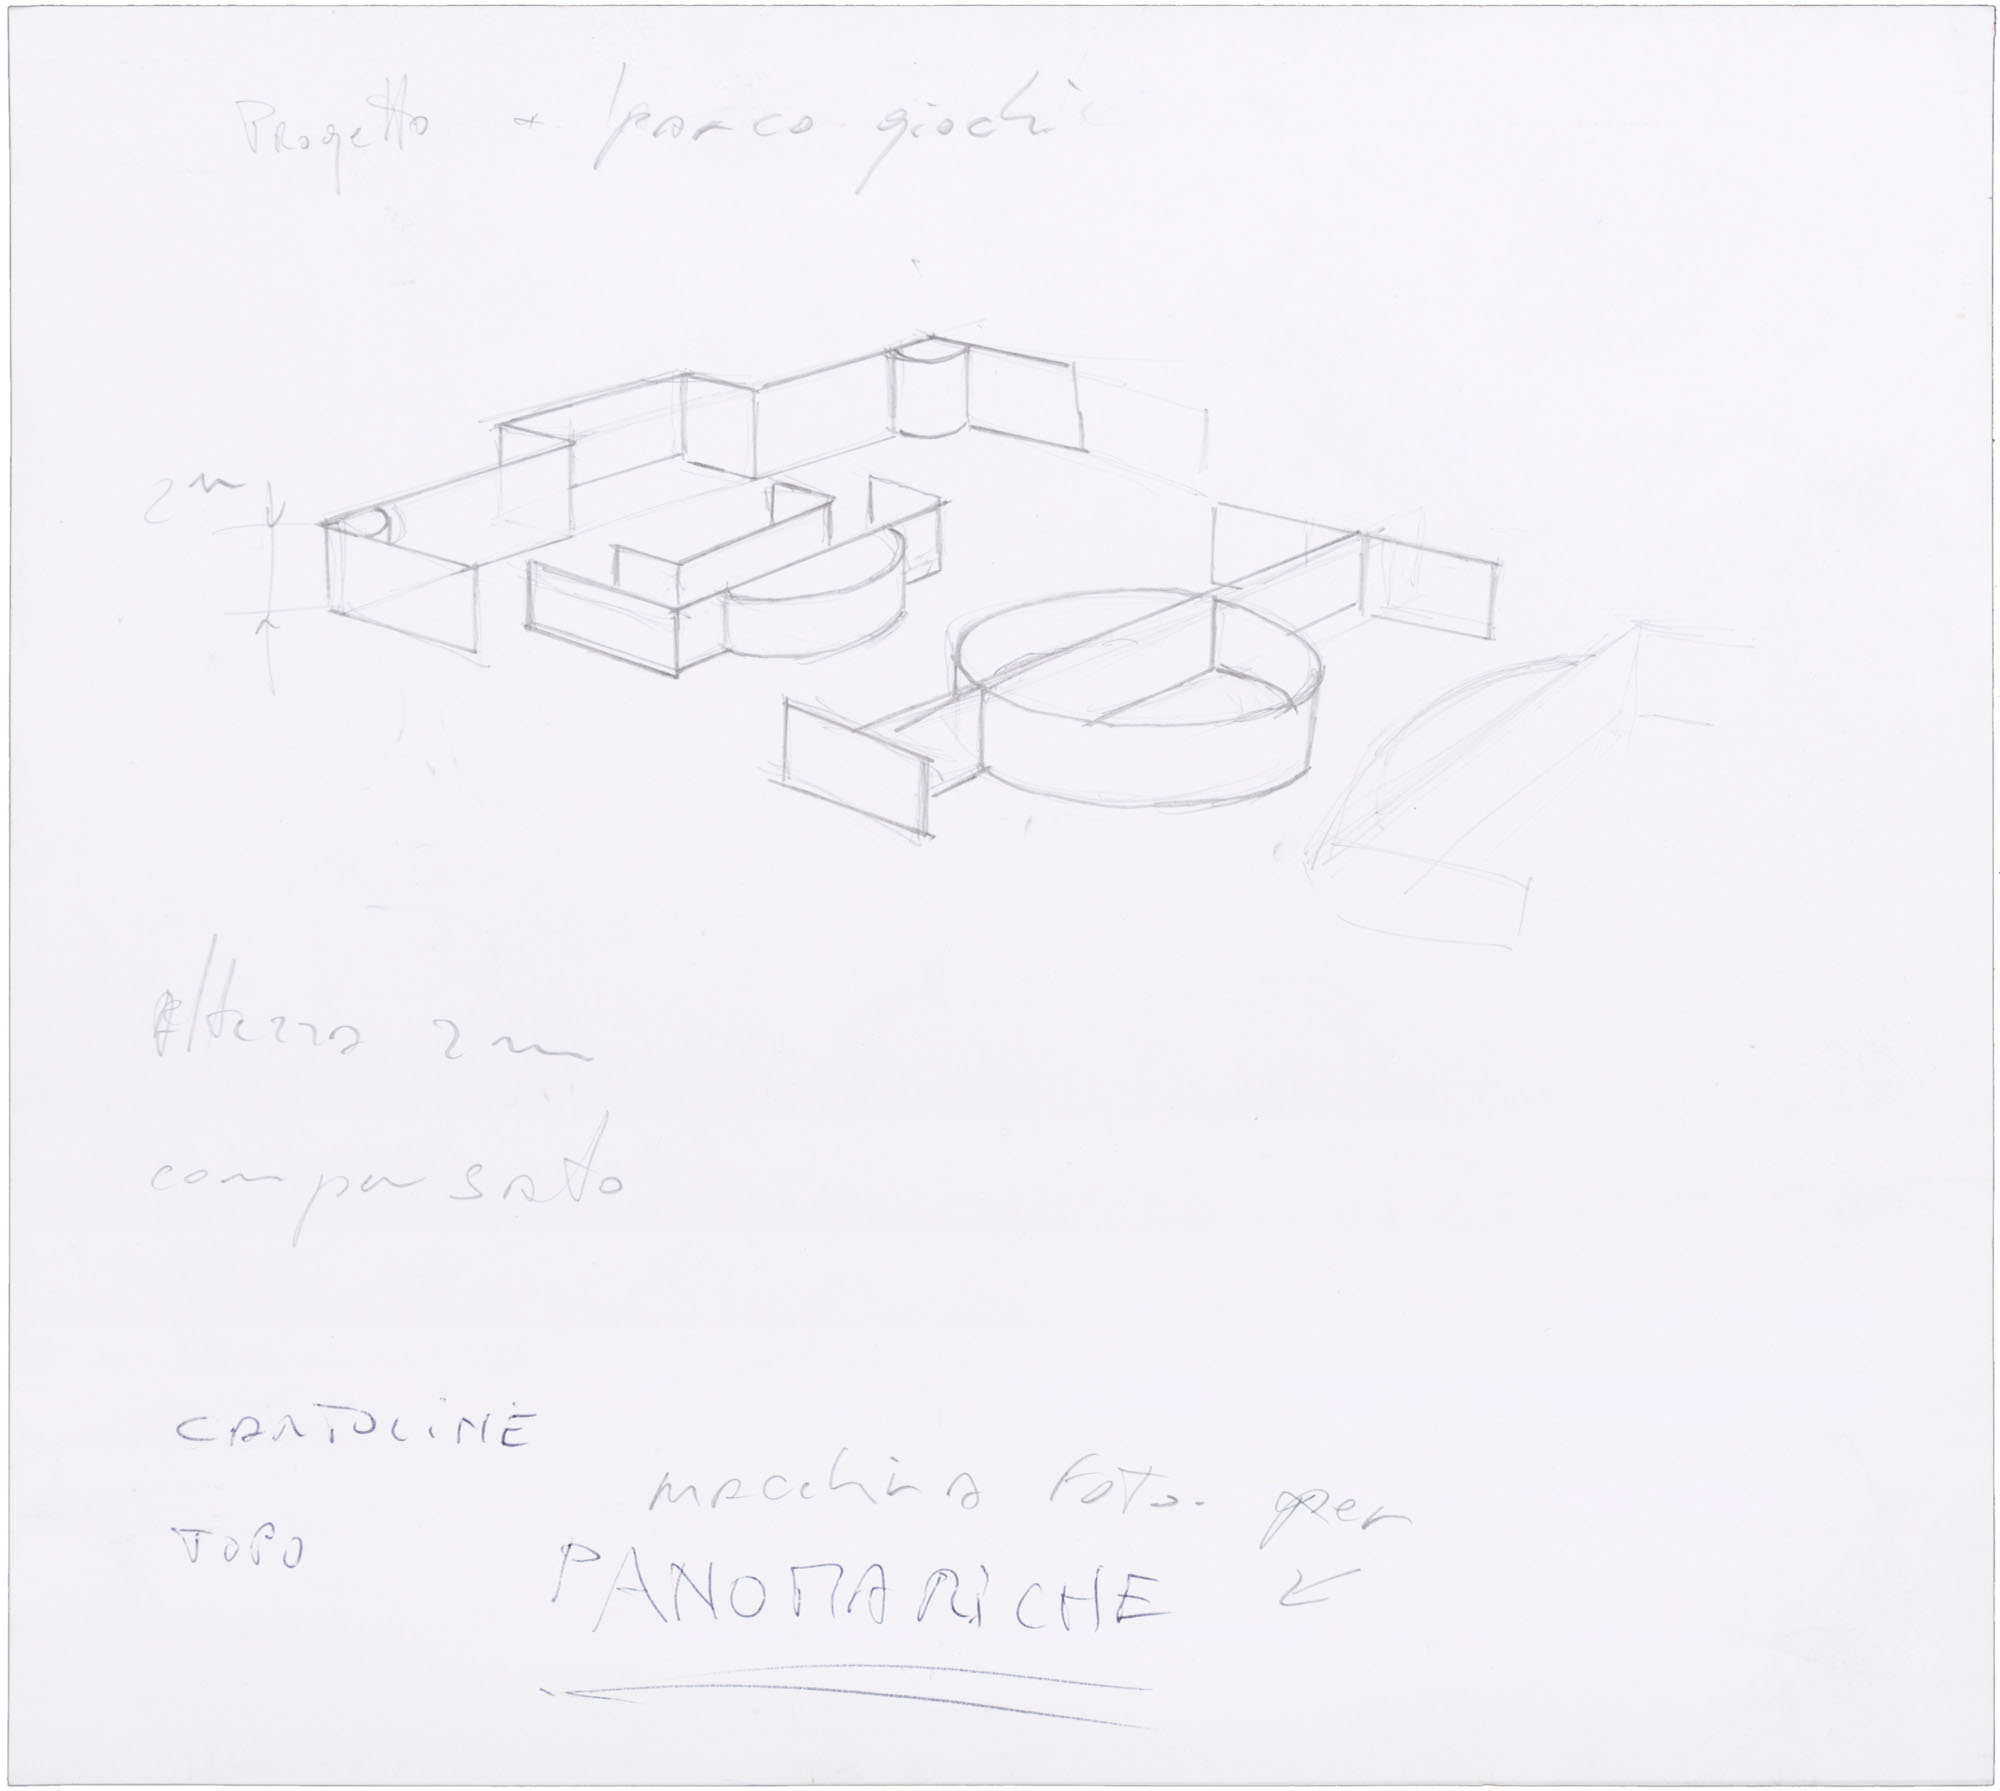 Progetto + parco giochi
2 m
Altezza 2 m
compensato
CARTOLINE
macchina foto. per
TOPO
PANOMARICHE